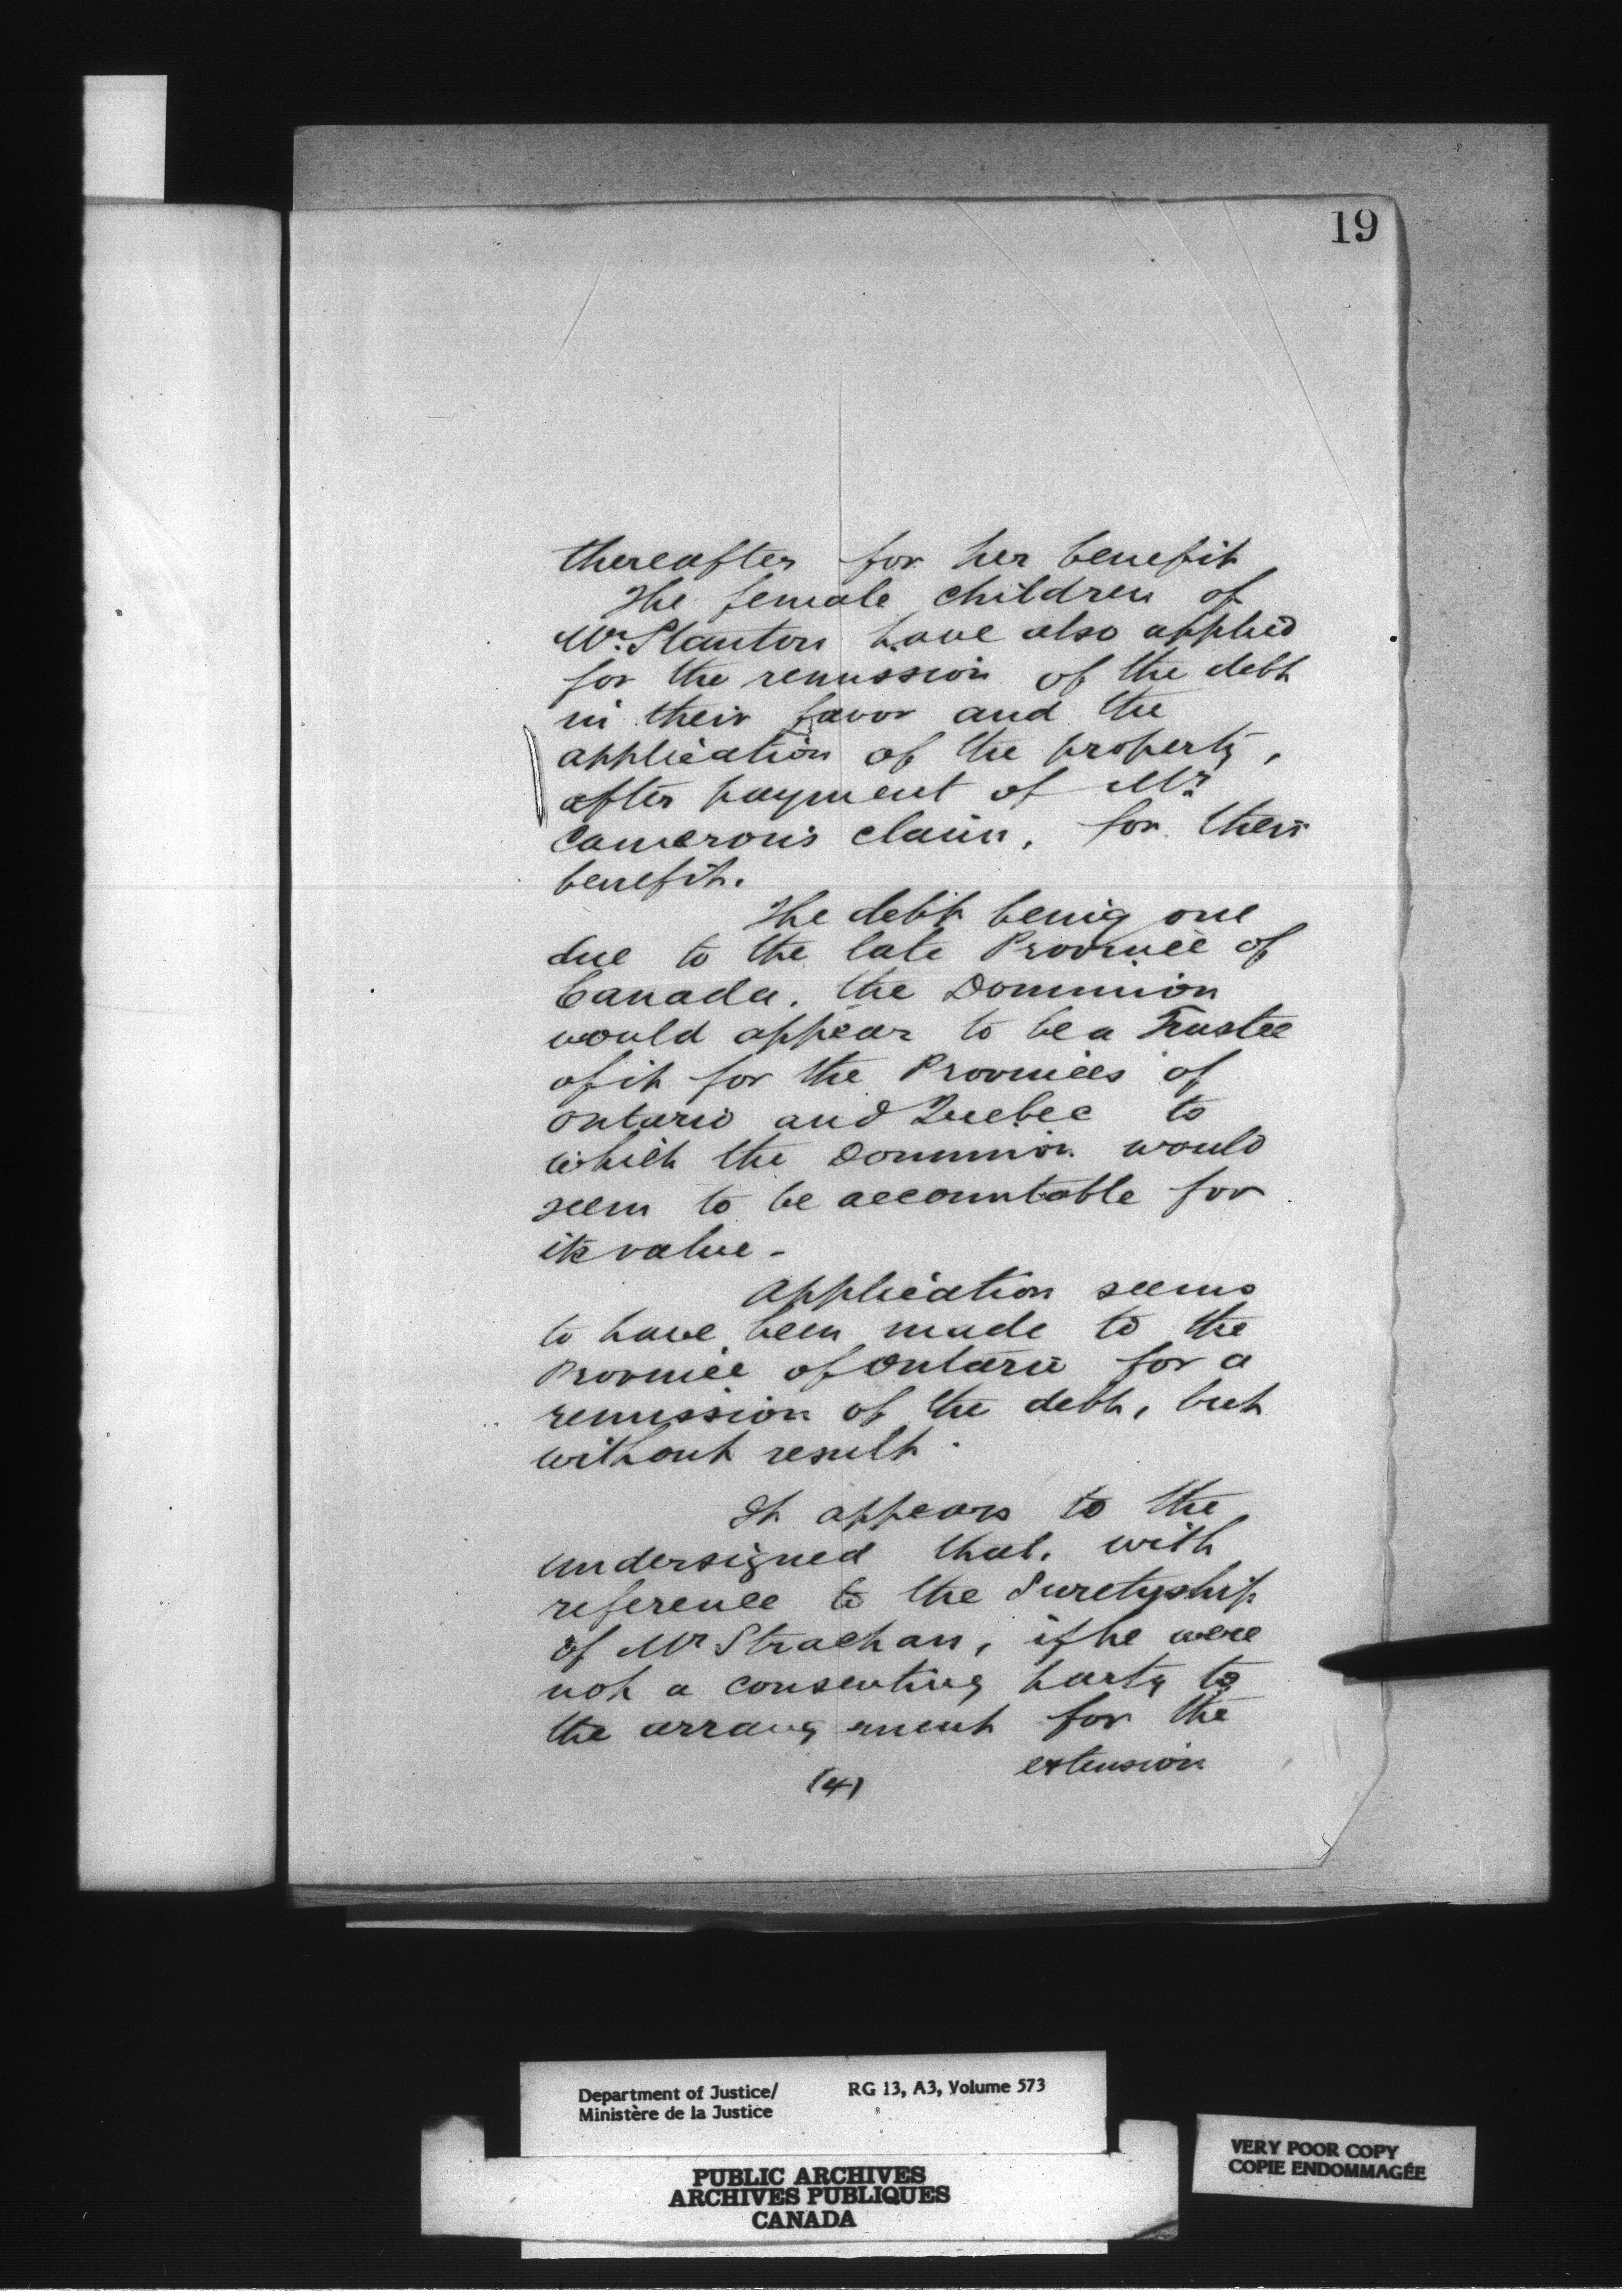 19
thereafter for her benefit
The female children of
Mr. Stanton have also applied
for the remission of the debt
in their favor and the
application of the property,
after payment of Mr.
Cameron's claim, for their
benefit.
The debt being one
due to the late Province of
Canada, the Dominion
would appear to be a Trustee
of it for the Provinces of
Ontario and Quebec to
which the Dominion would
seem to be accountable for
its value -
Application seems
to have been made to the
Province of Ontario for a
remission of the debt, but
without result.
It appears to the
undersigned that, with
reference to the Suretyship
of Mr Strachan, if he were
not a consenting party to
the arrangement for the
extension
(4)
Department of Justice/ RG 13, A3, Volume 573
Ministère de la Justice
PUBLIC ARCHIVES
ARCHIVES PUBLIQUES
CANADA
VERY POOR COPY
COPIE ENDOMMAGÉE